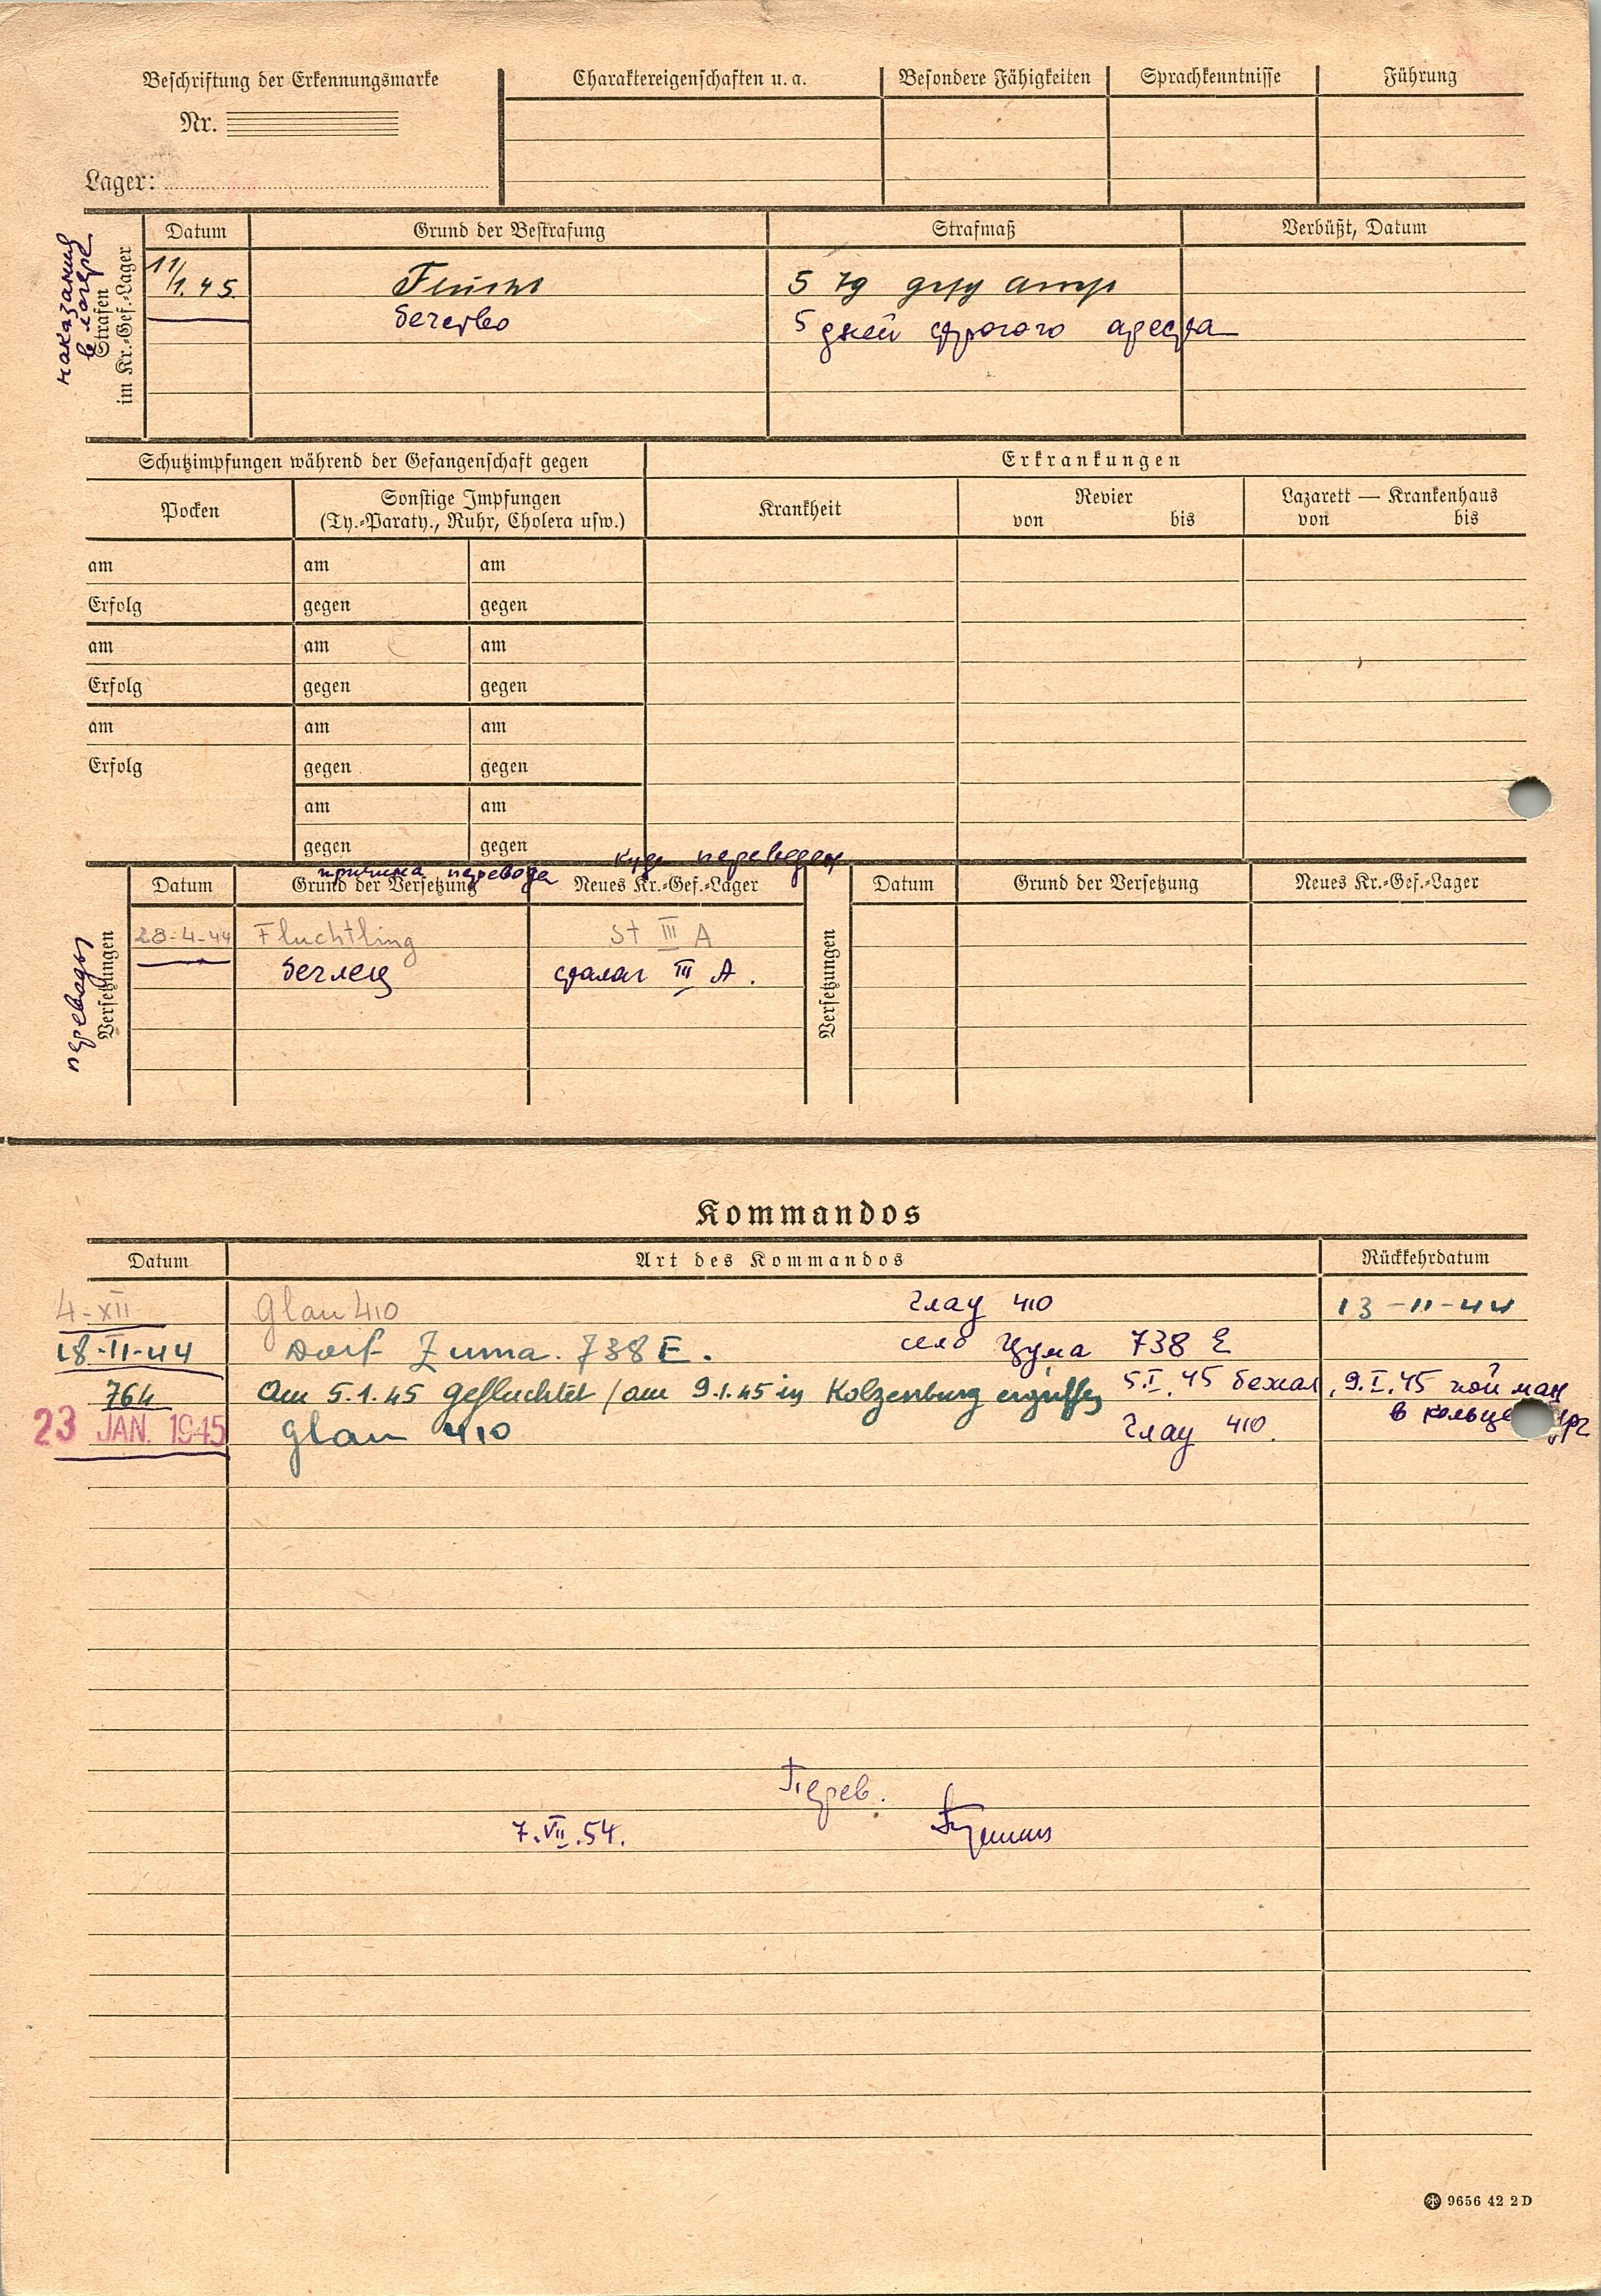 Beschriftung der Erkennungsmarke
Nr.
Lager:
Charaktereigenschaften u. a.
Besondere Fähigkeiten
Sprachkenntnisse
Führung
наказания
в лагере
Strafen
im Kr.-Gef.-Lager
Datum
Grund der Bestrafung
Strafmaß
Verbüßt, Datum
11/1.45.
Flucht
5 Tg
бегство
5 дней строгого ареста
Schutzimpfungen während der Gefangenschaft gegen
Erkrankungen
Pocken
Sonstige Impfungen
(Ty.-Paraty., Ruhr, Cholera usw.)
Krankheit
Revier
von bis
Lazarett — Krankenhaus
von bis
am am am
Erfolg gegen gegen
am am am
Erfolg gegen gegen
am am am
Erfolg gegen gegen
am am
gegen gegen
причина перевода
куда переведен
переводы
Versetzungen
Datum
Grund der Versetzung
Neues Kr.-Gef.-Lager
Versetzungen
Datum
Grund der Versetzung
Neues Kr.-Gef.-Lager
28-4-44 Fluchtling St III A
беглец сталаг III A.
Kommandos
Datum
Art des Kommandos
Rückkehrdatum
4-XII Glau 410 Глау 410 13-11-44
18-II-44 Dorf Zuma. 738 E. село Цума 738 E
764 Am 5.1.45 gefluchtet / am 9.1.45 in Kolzenburg ergriffen 5.I.45 бежал, 9.I.45 пойман
в
23 JAN. 1945 Glau 410 Глау 410.
Перев.
7.VII.54.
9656 42 2 D